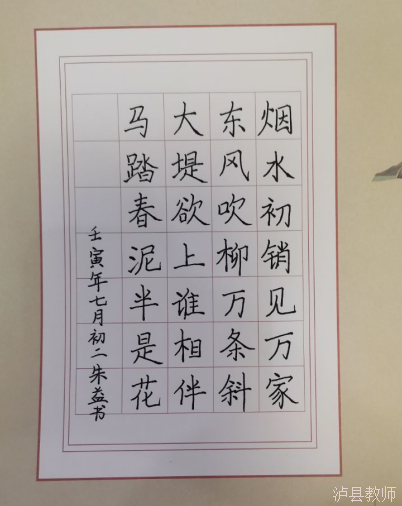 烟水初销见万家
东风吹柳万条斜
大堤欲上谁相伴
马踏春泥半是花
壬寅年七月初二朱益书
泸县教师